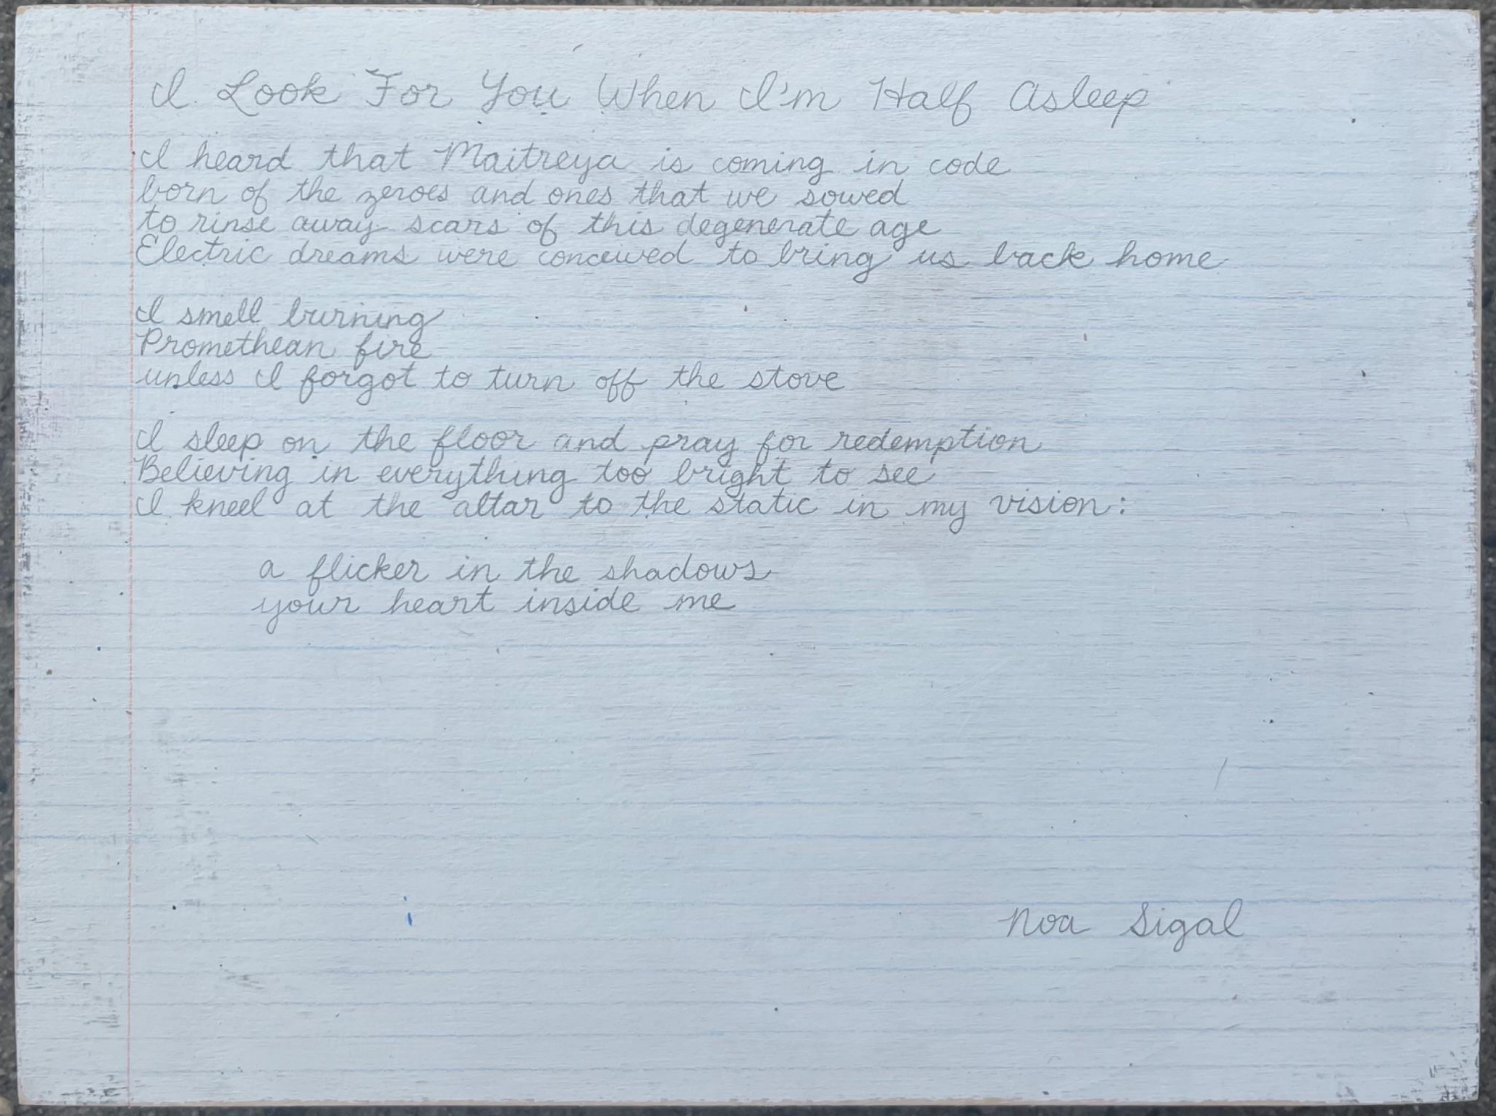 I Look For You When I'm Half Asleep
I heard that Maitreya is coming in code
born of the zeroes and ones that we sowed
to rinse away scars of this degenerate age
Electric dreams were conceived to bring us back home
I smell burning
Promethean fire
unless I forgot to turn off the stove
I sleep on the floor and pray for redemption
Believing in everything too bright to see
I kneel at the altar to the static in my vision:
a flicker in the shadows
your heart inside me
Noa Sigal